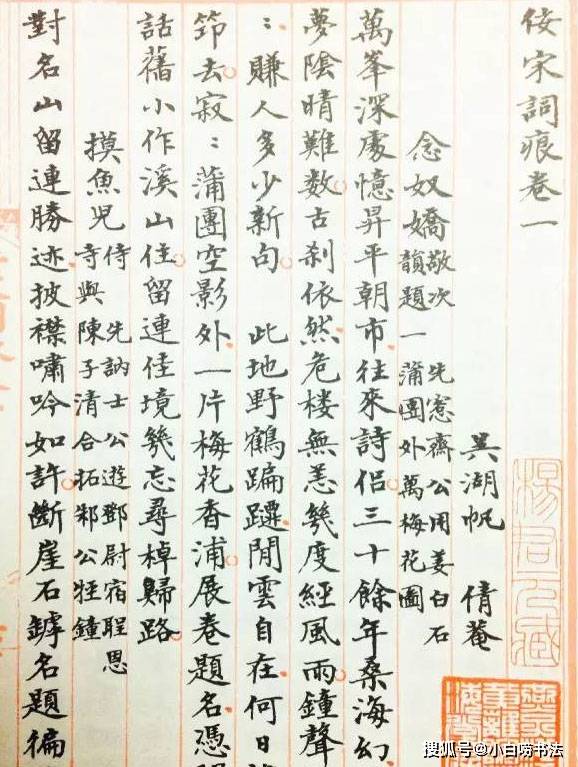 佞宋詞痕卷一
吳湖帆 倩菴
念奴嬌 敬次 先愙齋公用姜白石
韻題一蒲團外萬梅花圖
萬峯深處憶昇平朝市往來詩侶三十餘年桑海幻
夢陰晴難数古刹依然危楼無恙幾度經風雨鐘聲
：賺人多少新句 此地野鶴蹁躚閒雲自在何日
筇去寂：蒲團空影外一片梅花香浦展卷題名憑
話舊小作溪山住留連佳境幾忘尋棹歸路
摸魚兒 侍 先訥士公遊鄧尉宿聖恩
寺與陳子清合拓邾公牼鐘
對名山留連勝迹披襟嘯吟如許斷崖石罅名題徧
搜狐号@小白唠书法